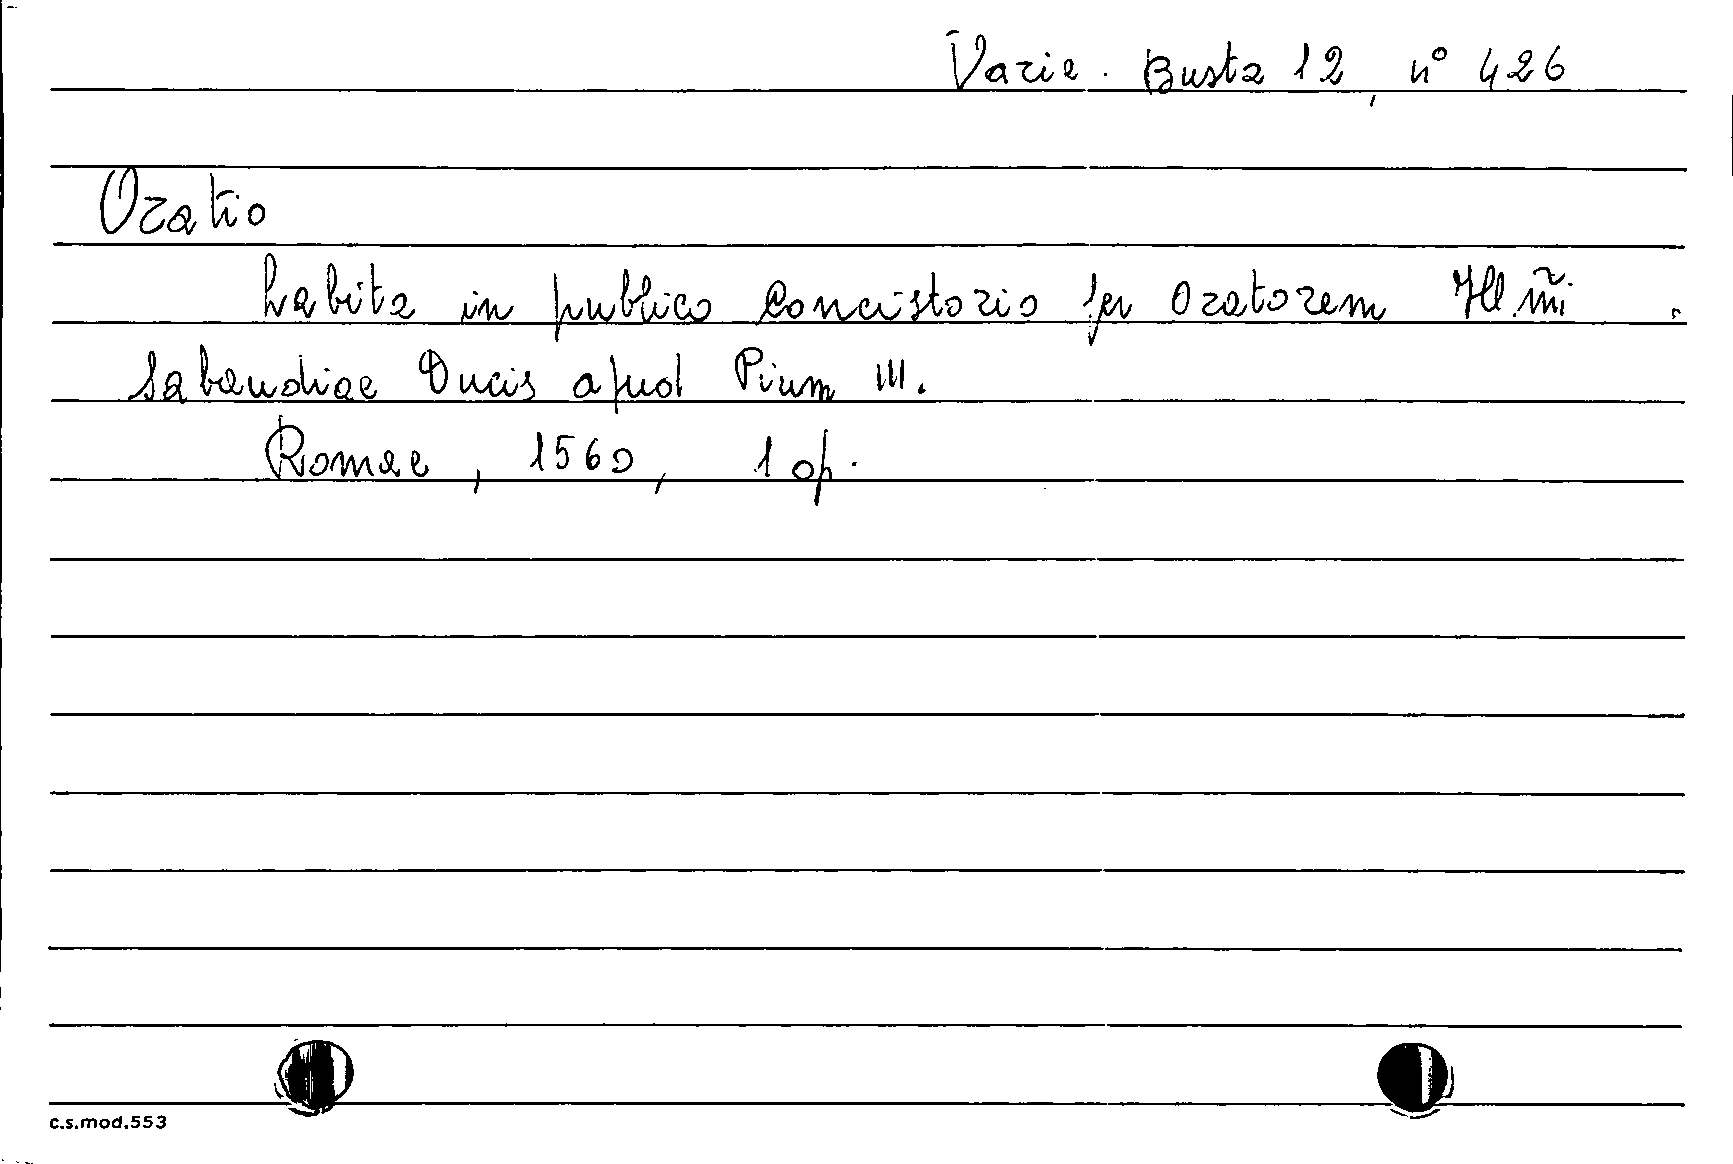 Varie. Busta 12, n° 426
Oratio
habita in publico Concistorio per Oratorem Ill.m̃i
Sabaudiae Ducis apud Pium III.
Romae, 1560, 1 op.
c.s.mod.553